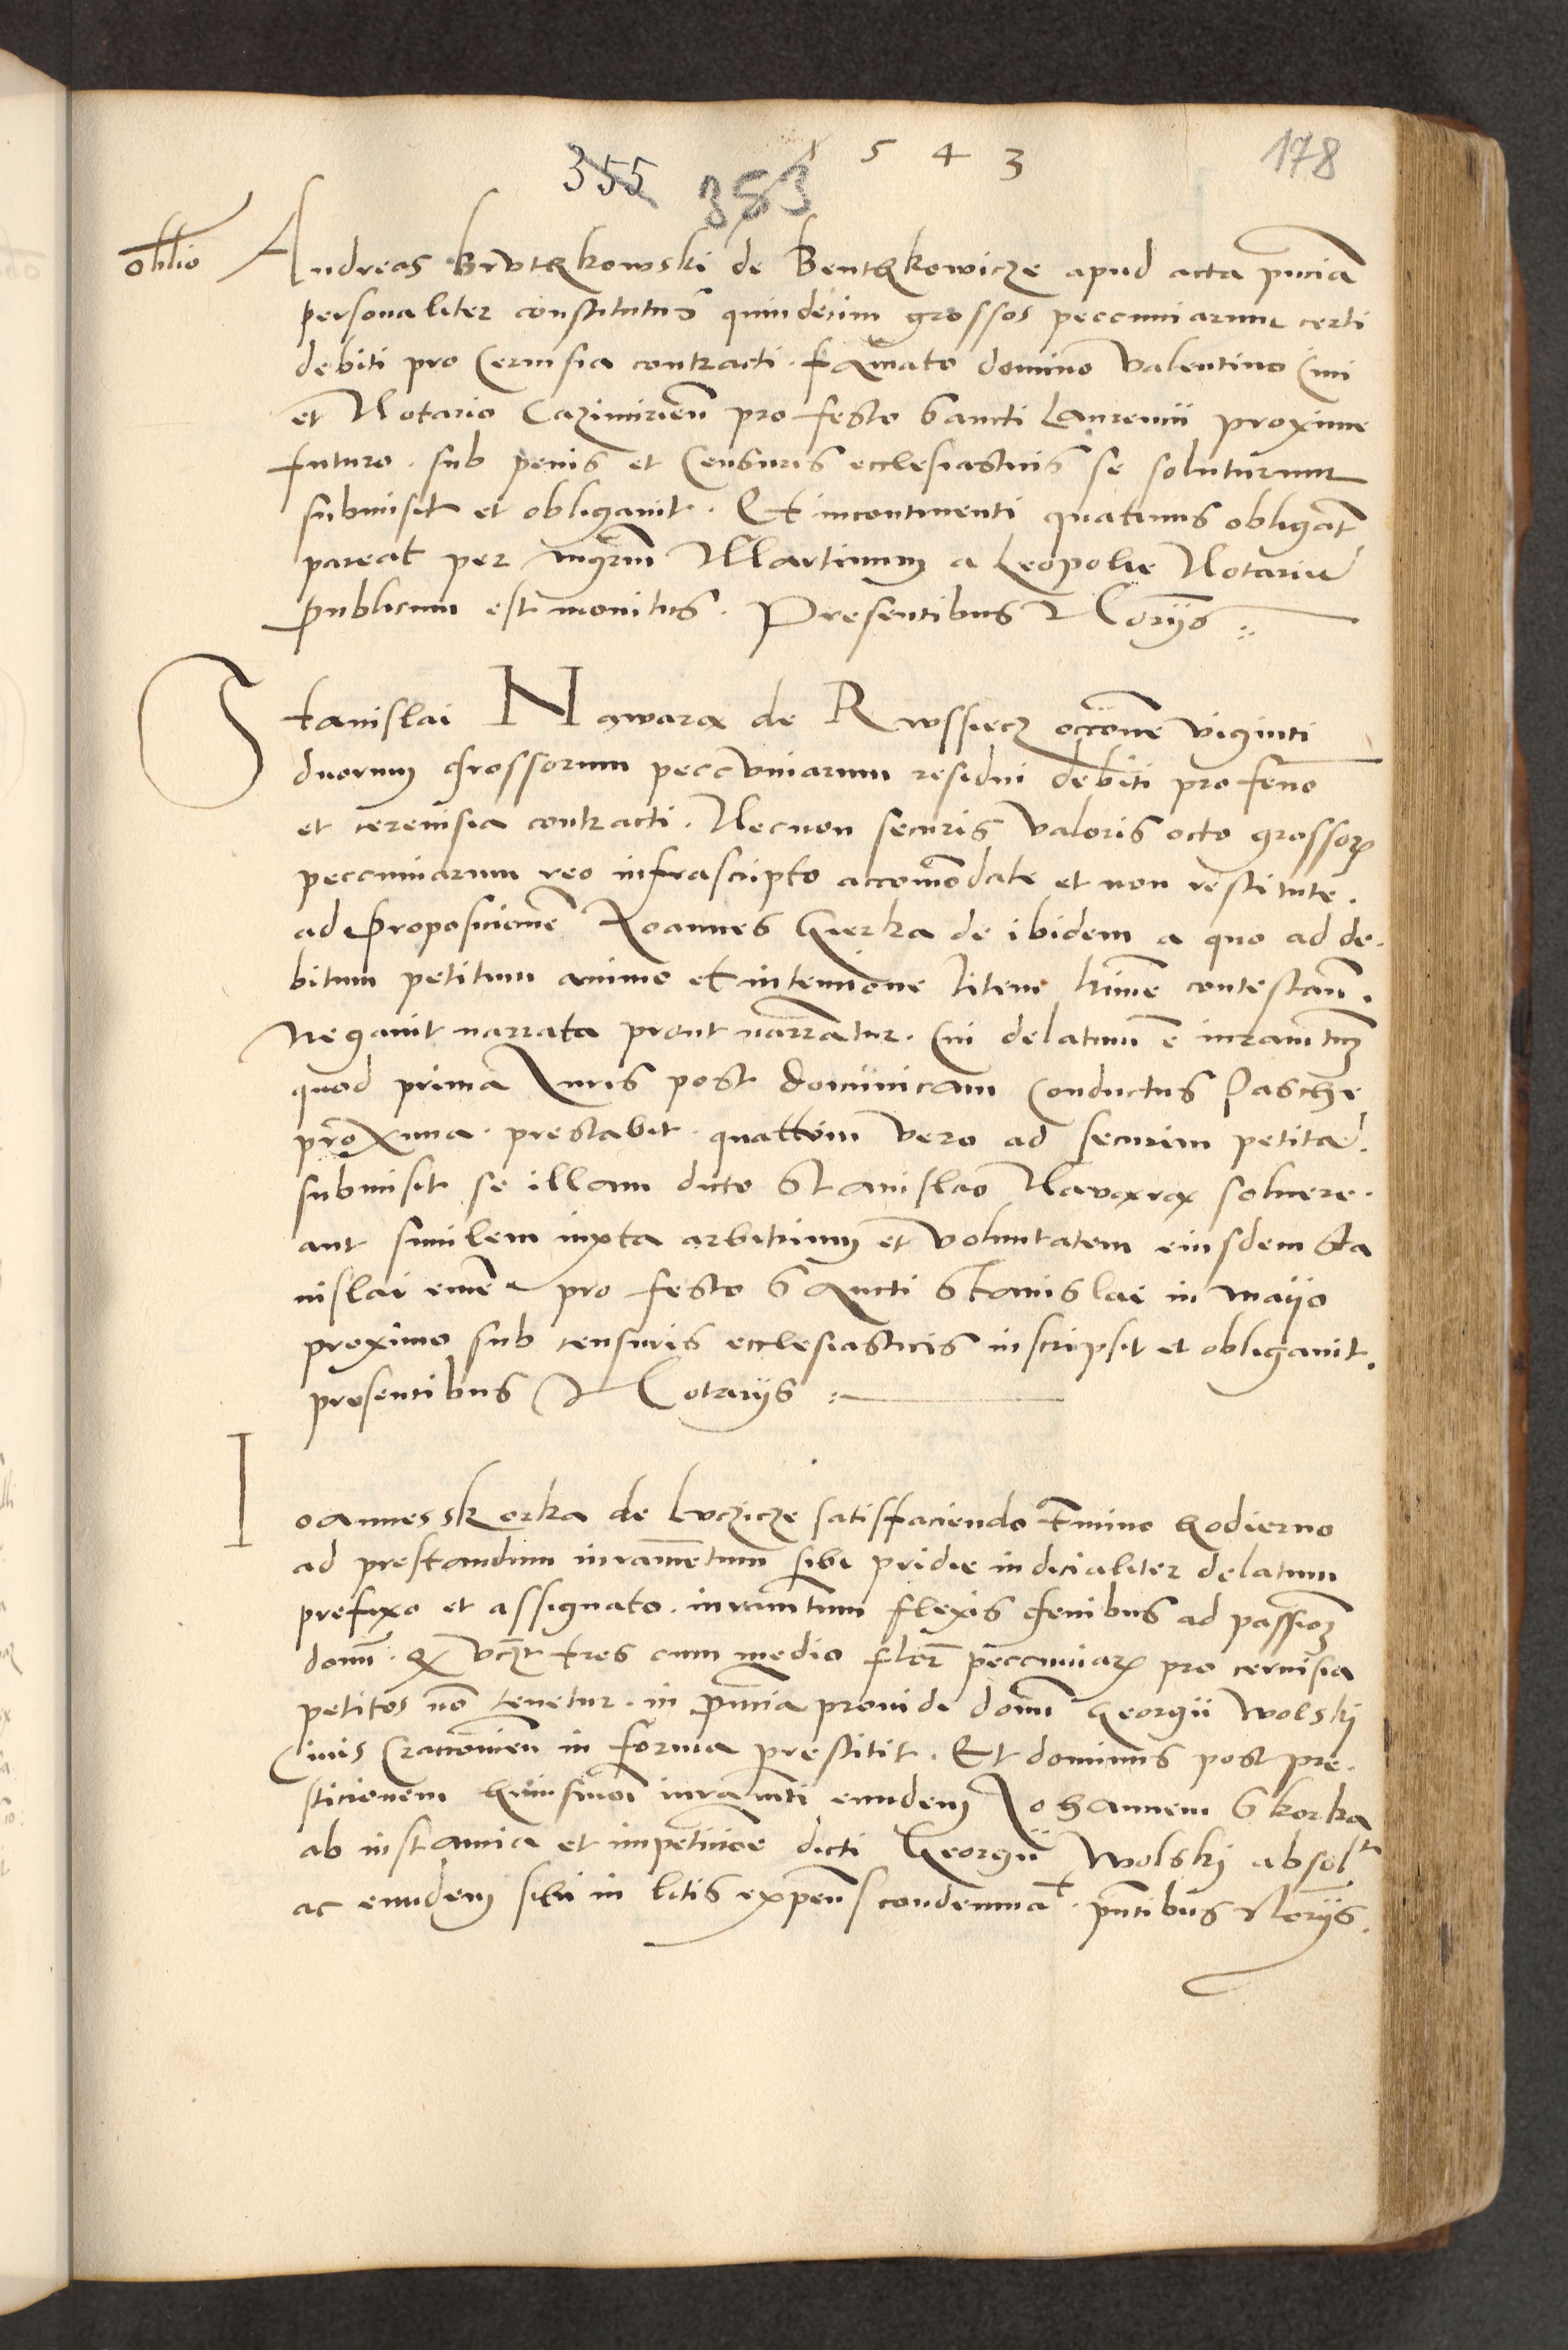 1 5 4 3
178
355 353
obllio Andreas Brvtkkowski de Bentkkowicze apud acta pnciã
personaliter constitutus quindecim grossos peccuniarum certi
debiti pro Ceruisia contracti. famato domino Valentino Ciui
et Notario Cazimirien̄ pro festo Sancti Laurencii proxime
futuro. sub penis et Censuris ecclesiasticis se soluturum
submisit et obligauit. Et incontinenti quatinus obligāt
pareat per mgr̄m Martinum a Leopolie Notariū
publicum est monitus. Presentibus Nõrijs
Stanislai Nawara de Rwssiecz occiõne viginti
duorum Grossorum peccvniarum residui debiti pro feno
et cereuisia contracti. Necnon securis valoris octo grossor̃
peccuniarum reo infrascripto accomõdate et non restitute.
ad Proposicionē Joannes Gierka de ibidem a quo ad de-
bitum petitum animo et intencione litem huiuē contestan̄.
Negauit narrata prout narrantur. Cui delatum ē iuramtum
quod prima Juris post dominicam Conductus Pasche
proxima. prestabit. quattum vero ad securim petitā.
submisit se illam dicto Stanislao Navara soluere.
aut similem iuxta arbitrium et Voluntatem eiusdem Sta
nislai emē pro festo Sancti Stanislai in mayo
proximo sub censuris ecclesiasticis inscripsit et obligauit.
presentibus Notarijs
Joannes Skorka de Lvczicze satisfaciendo tmino hodierno
ad prestandum iuramentum sibi pridie iudicialiter delatum
prefixo et assignato. iuramtum flexis Genibus ad passioꝫ
domī. qꝫ vcꝫt tres cum medio florꝫ peccuniarꝫ pro ceruisia
petitos nõ tenetur. in pn̄cia prouidi domī Georgii Wolskj
Ciuis Cracouien̄ in forma prestitit. Et dominus post pre-
sticionem huiusmoī iuramti eundem Johannem Skorka
ab instancia et impeticioe dicti Georgii Wolskj absolt
ac eundem sibi in litis expen̄s condemnat. pn̄tibus Nõrijs.